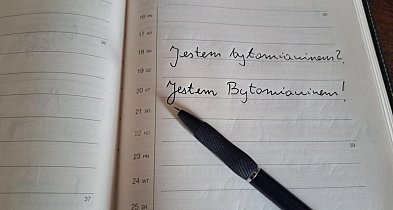 36
16 PN
17 WT
Jestem bytomianinem?
18 ŚR
38
19 CZ
Jestem Bytomianinem!
20 PT
21 SO
22 ND
39
23 PN
24 WT
37
25 ŚR